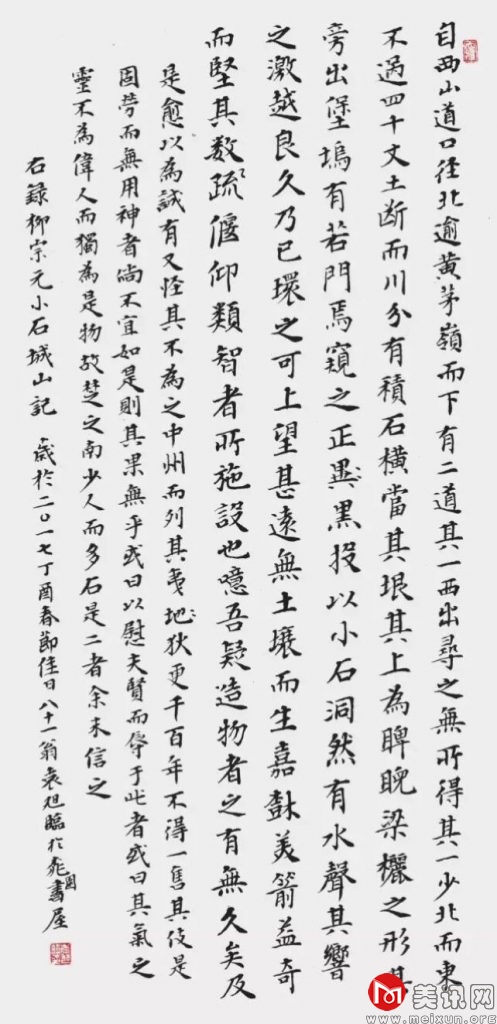 自西山道口径北逾黄茅嶺而下有二道其一西出尋之無所得其一少北而東
不過四十丈土断而川分有積石橫當其垠其上為睥睨梁欐之形其
旁出堡塢有若門焉窺之正異黑投以小石洞然有水聲其響
之激越良久乃已環之可上望甚遠無土壤而生嘉樹美箭益奇
而堅其数疏偃仰類智者所施設也噫吾疑造物者之有無久矣及
是愈以為誠有又怪其不為之中州而列其夷地狄更千百年不得一售其伎是
固勞而無用神者尚不宜如是則其果無乎或曰以慰夫賢而辱于此者或曰其氣之
靈不為偉人而獨為是物故楚之南少人而多石是二者余未信之
右錄柳宗元小石城山記 歲於二〇一七丁酉春節佳日八十一翁袁旭臨於園書屋
美讯网
www.meixun.org